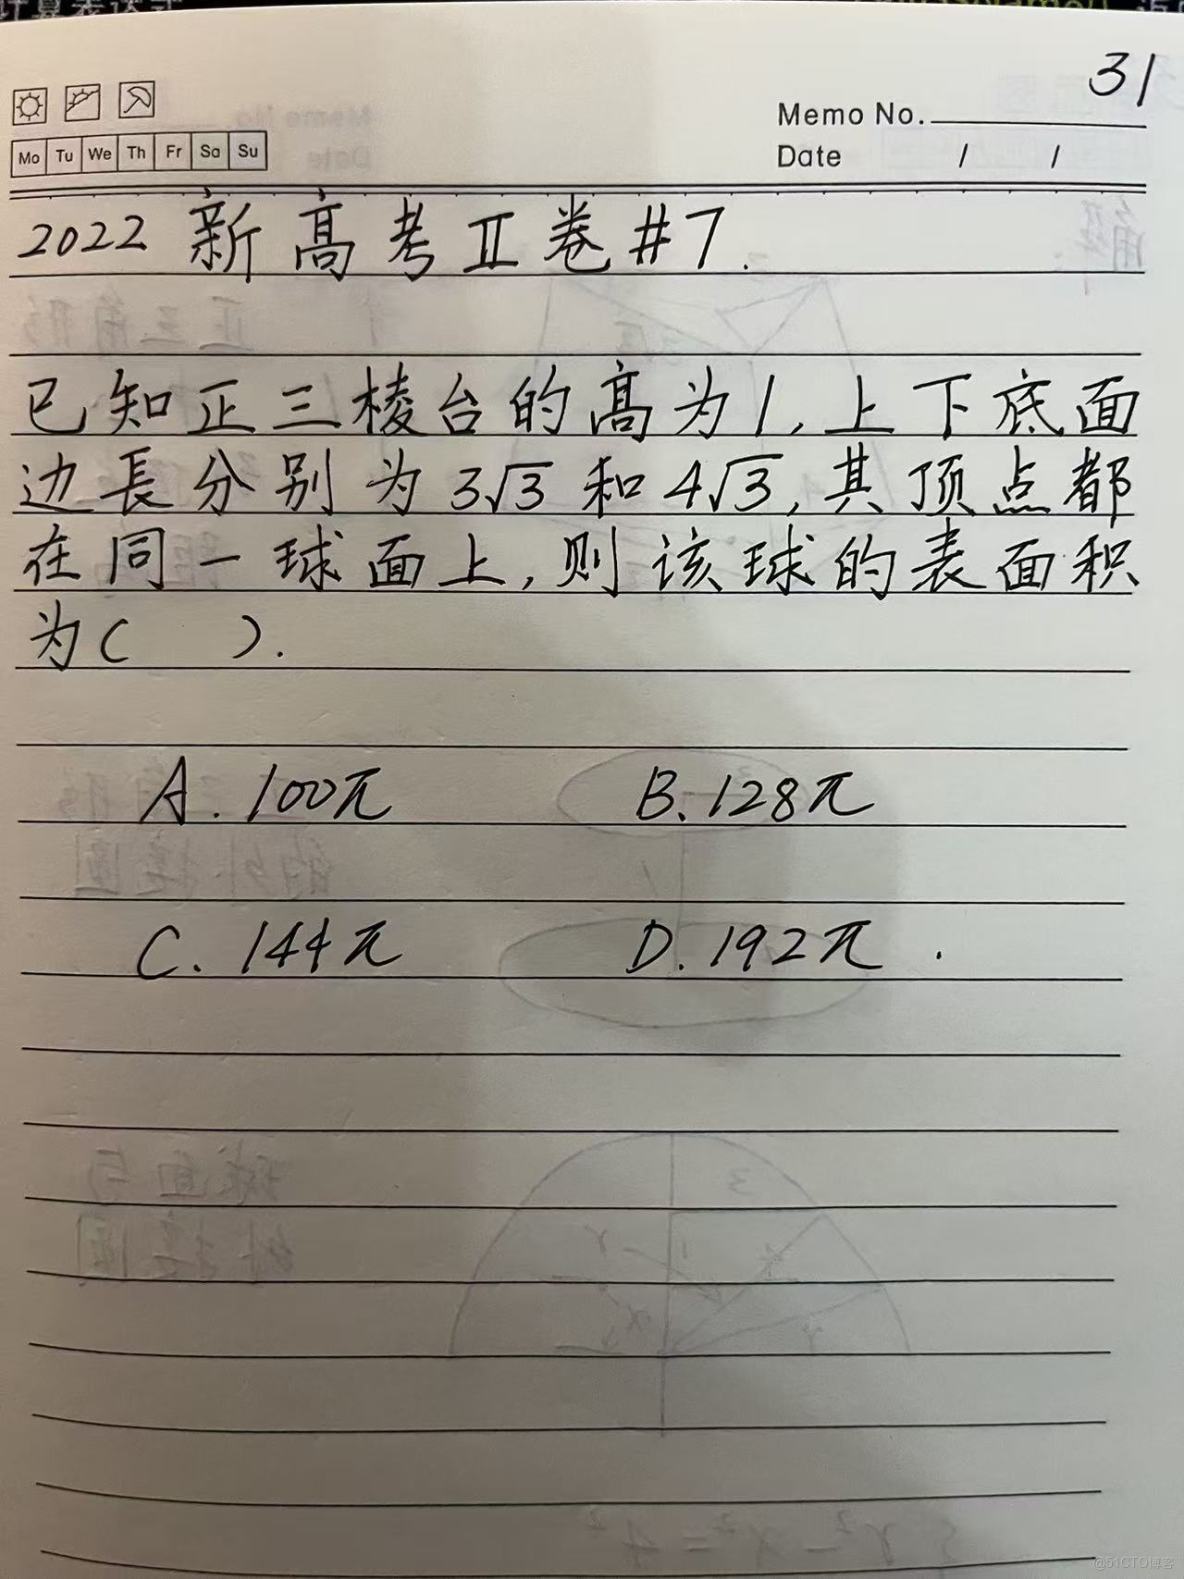 31
Memo No.
Mo Tu We Th Fr Sa Su
Date / /
2022 新高考Ⅱ卷#7.
已知正三棱台的高为1,上下底面
边長分别为3√3和4√3,其顶点都
在同一球面上,则该球的表面积
为( ).
A. 100π B. 128π
C. 144π D. 192π.
@51CTO博客